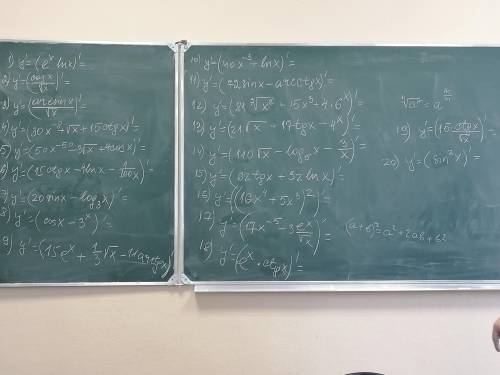 1) y'=(eˣ lnx)'=
2) y'=(cosx/√x)'=
3) y'=(arcsinx/√x)'=
4) y'=(30x⁻²√x+15ctgx)'=
5) y'=(50x⁻⁵
6) y'=(15ctgx-4lnx-
7) y'=(20sinx-log₃x)'=
8) y'=(cosx-3ˣ)'=
9) y'=(15eˣ+1/3√x-11arctgx)'
10) y'=(40x⁻³-lnx)'=
11) y'=(72sinx-arcctgx)'=
12)
13) y'=(21√x+17tgx-4ˣ)'=
14) y'=(110√x-log₅x-3/x)'=
15) y'=(82tgx+32lnx)'=
16) y'=(10x⁴+5x³)²)'=
17) y'=(17x⁻⁵-3
18) y'=(eˣ+ctgx)'=
ⁿ√aᵏ=a
19) y'=(15ctgx/√x)'=
20) y'=(sin²x)'=
(a+b)²=a²+2ab+b²